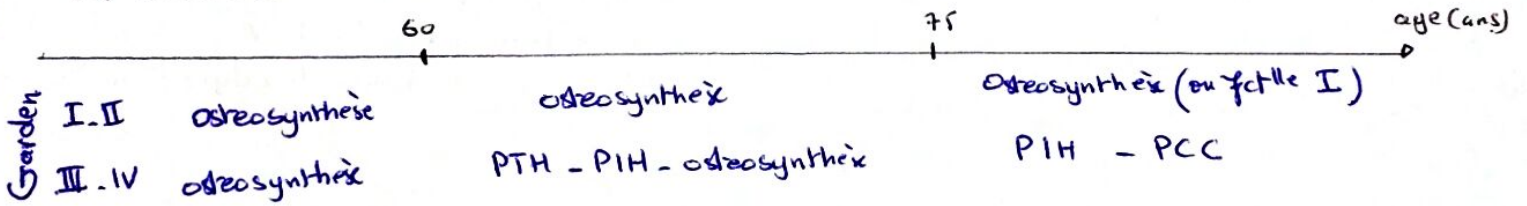 60 75 age (ans)
Garden
I-II osteosynthèse osteosynthèse Osteosynthèse (ou fctlle I)
III-IV osteosynthèse PTH - PIH - osteosynthèse PIH - PCC